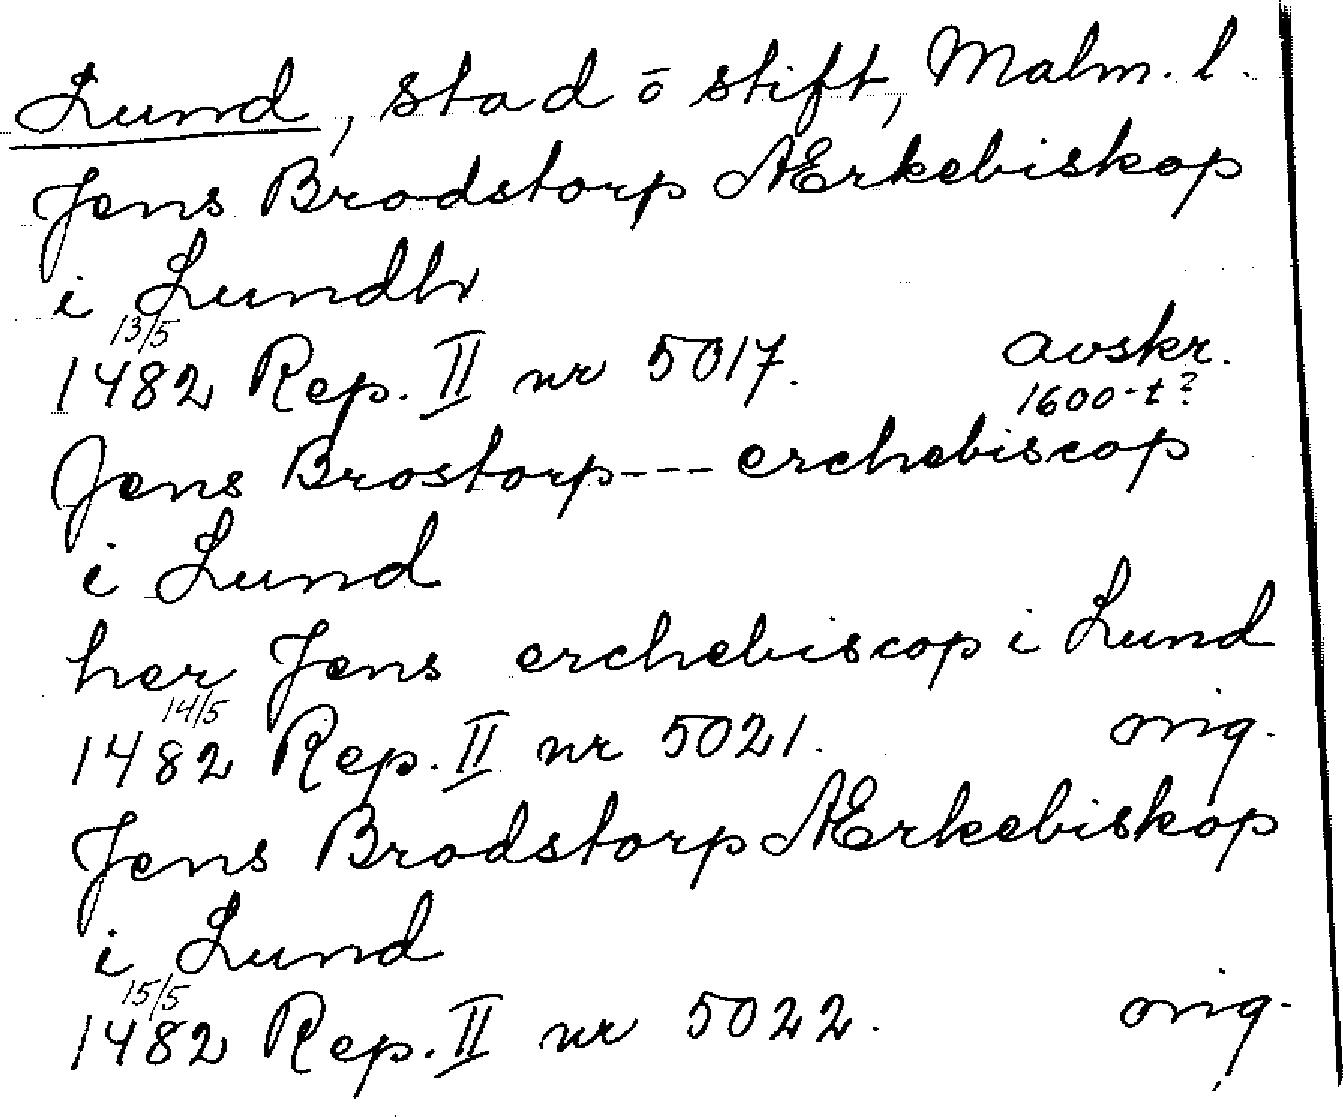 Lund, stad o stift, Malm. l.
Jens Brodstorp Ærkebiskop
i Lundh
13/5
1482 Rep. II nr 5017. avskr.
1600-t?
Jens Brostorp--- erchebiscop
i Lund
her Jens erchebiscop i Lund
14/5
1482 Rep. II nr 5021. orig.
Jens Brodstorp Ærkebiskop
i Lund
15/5
1482 Rep. II nr 5022. orig.